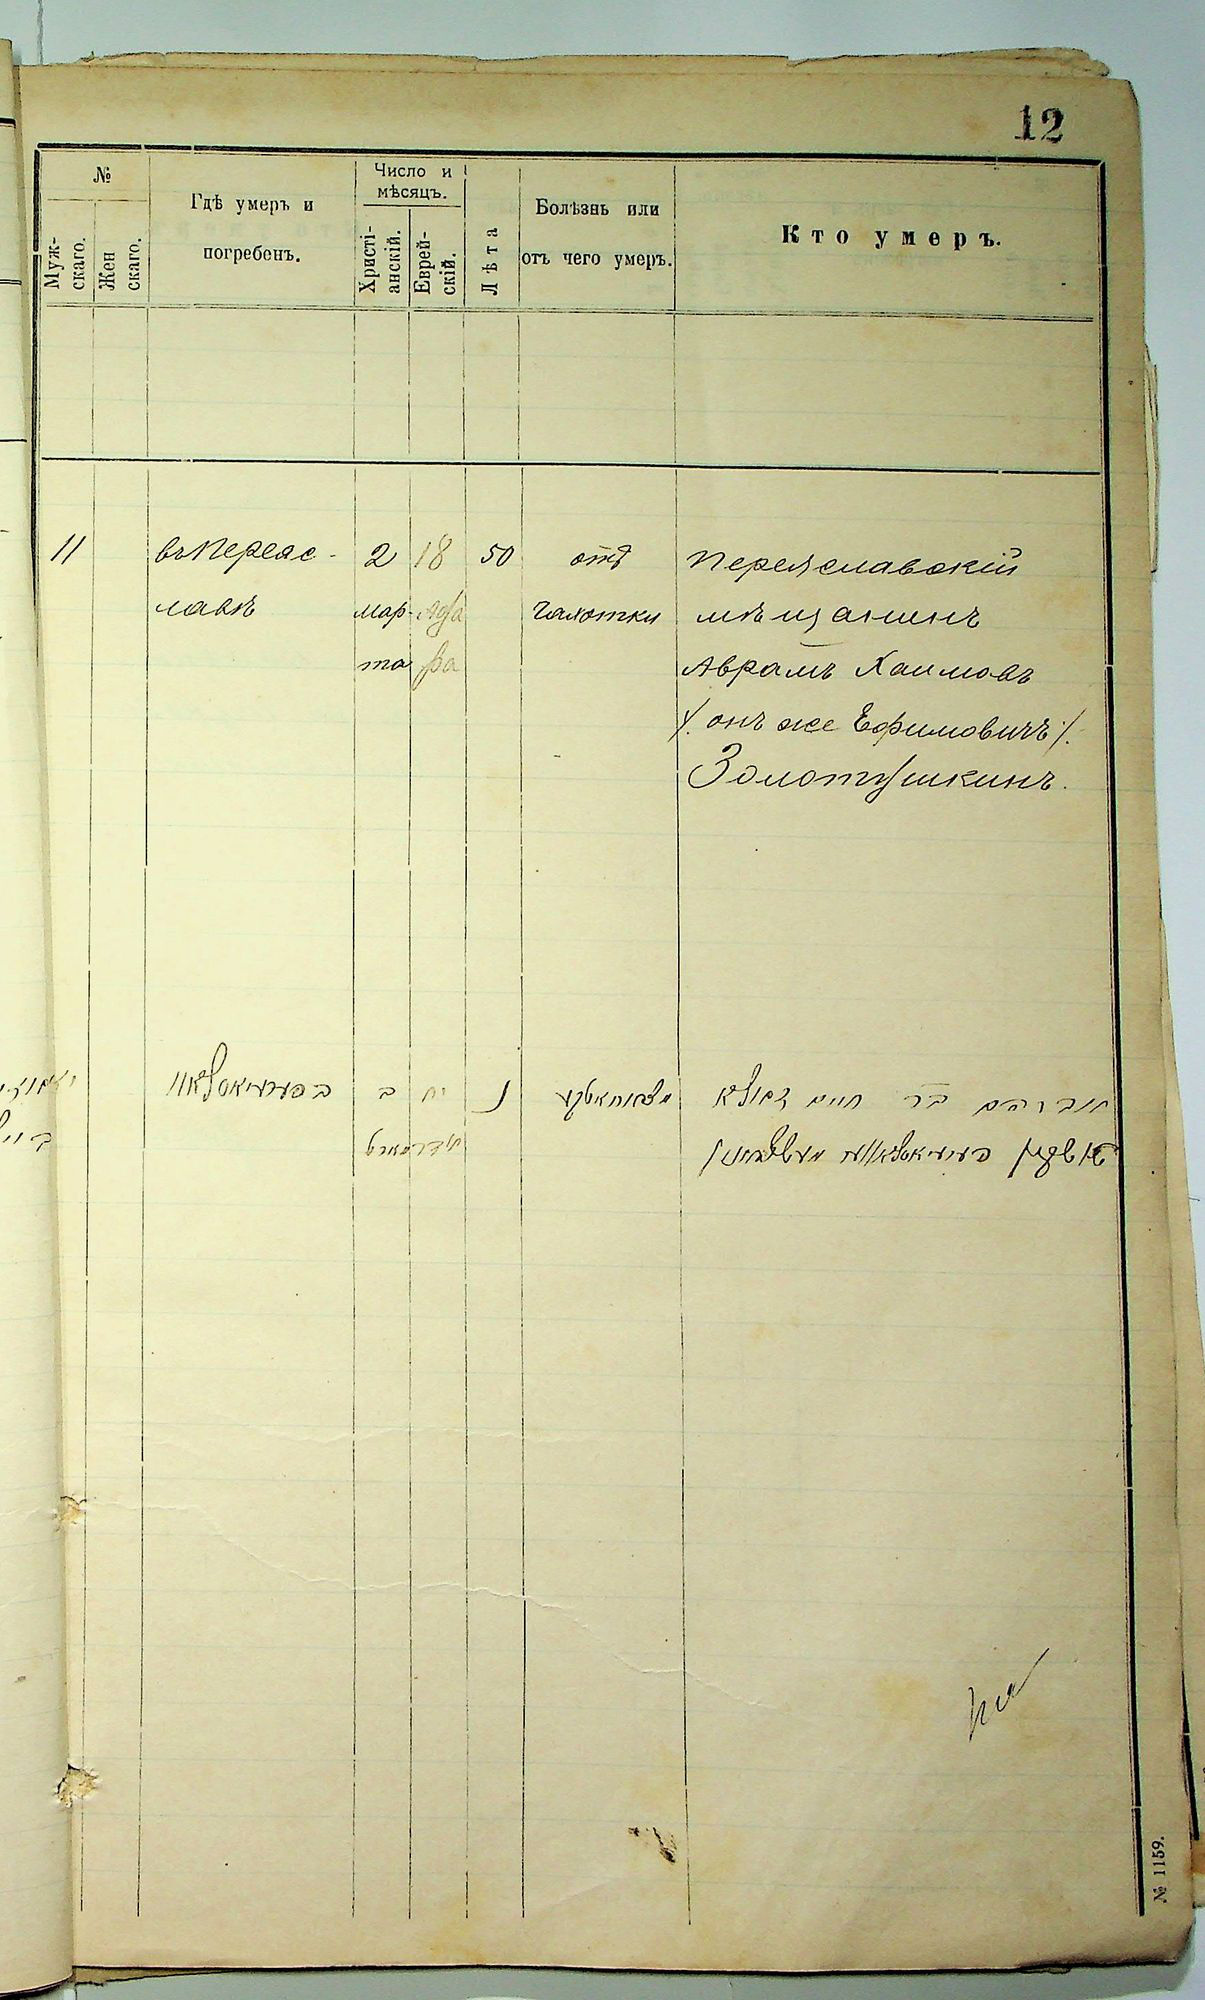 12
№
Муж-
скаго.
Жен
скаго.
Гдѣ умеръ и
погребенъ.
Число и
мѣсяцъ.
Христі-
анскій.
Еврей-
скій.
Лѣта
Болѣзнь или
отъ чего умеръ.
Кто умеръ.
11
въ Переяс-
лавѣ
2
мар-
та
18
Ада
ра
50
отъ
чахотки
Переяславскій
мѣщанинъ
Аврамъ Хаимовъ
/. онъ же Ефимовичъ ./.
Золотушкинъ.
ב
יח
נ
אברהם בר חיים
№ 1159.